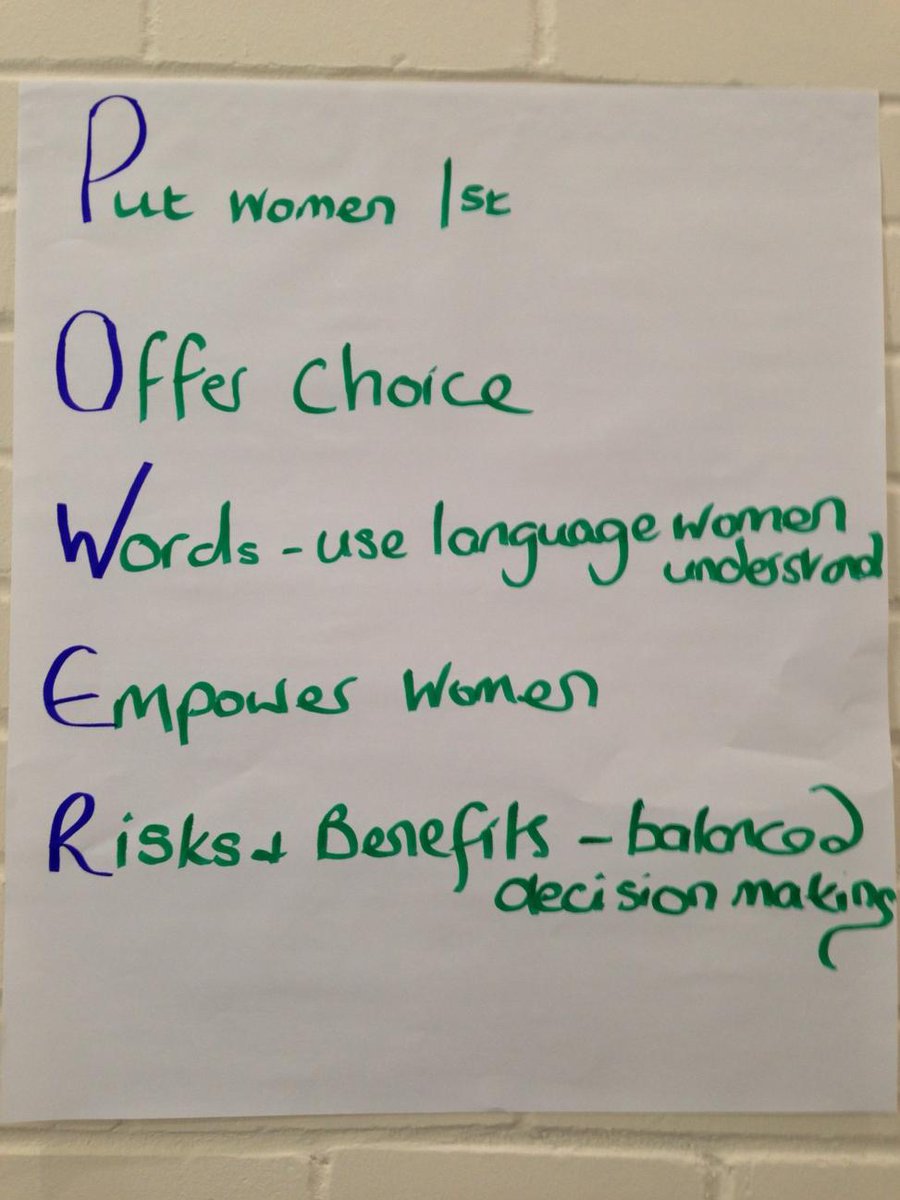 Put women 1st
Offer choice
Words - use language women
understand
Empower women
Risks + Benefits - balanced
decision making